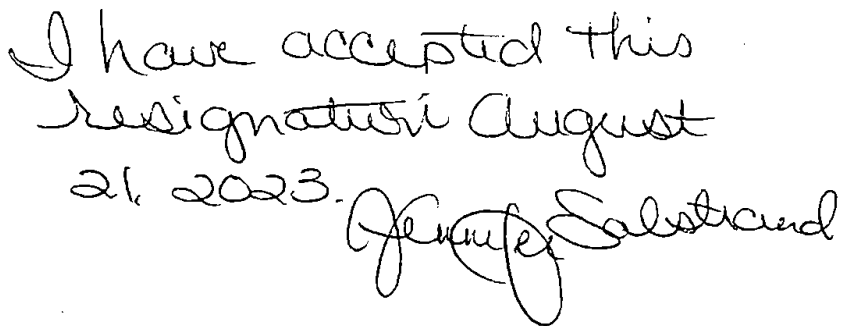 I have accepted this
resignation August
21, 2023.
Jennifer Salstrand